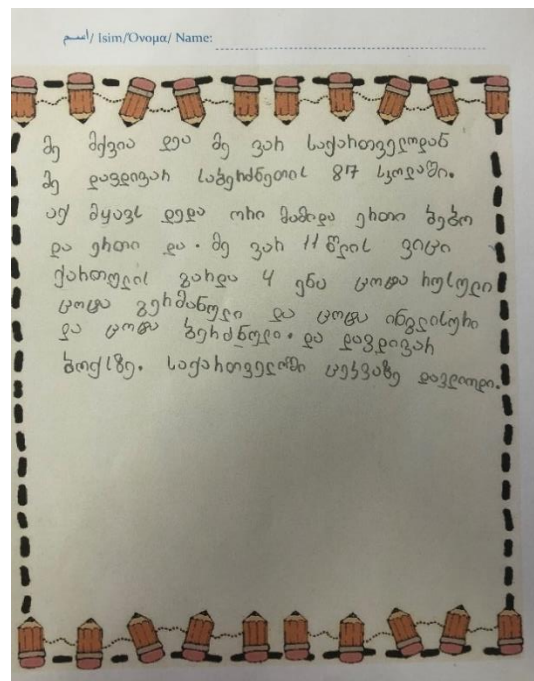 اسم/ Isim/Όνομα/ Name:
მე მქვია დეა მე ვარ საქართველოდან
მე დავდივარ საბერძნეთის 87 სკოლაში.
აქ მყავს დედა ორი მამიდა ერთი ბებო
და ერთი და. მე ვარ 11 წლის ვიცი
ქართულის გარდა 4 ენა ცოტა რუსული
ცოტა გერმანული და ცოტა ინგლისური
და ცოტა ბერძნული. და დავდივარ
ბოქსზე. საქართველოში ცეკვაზე დავდიოდი.